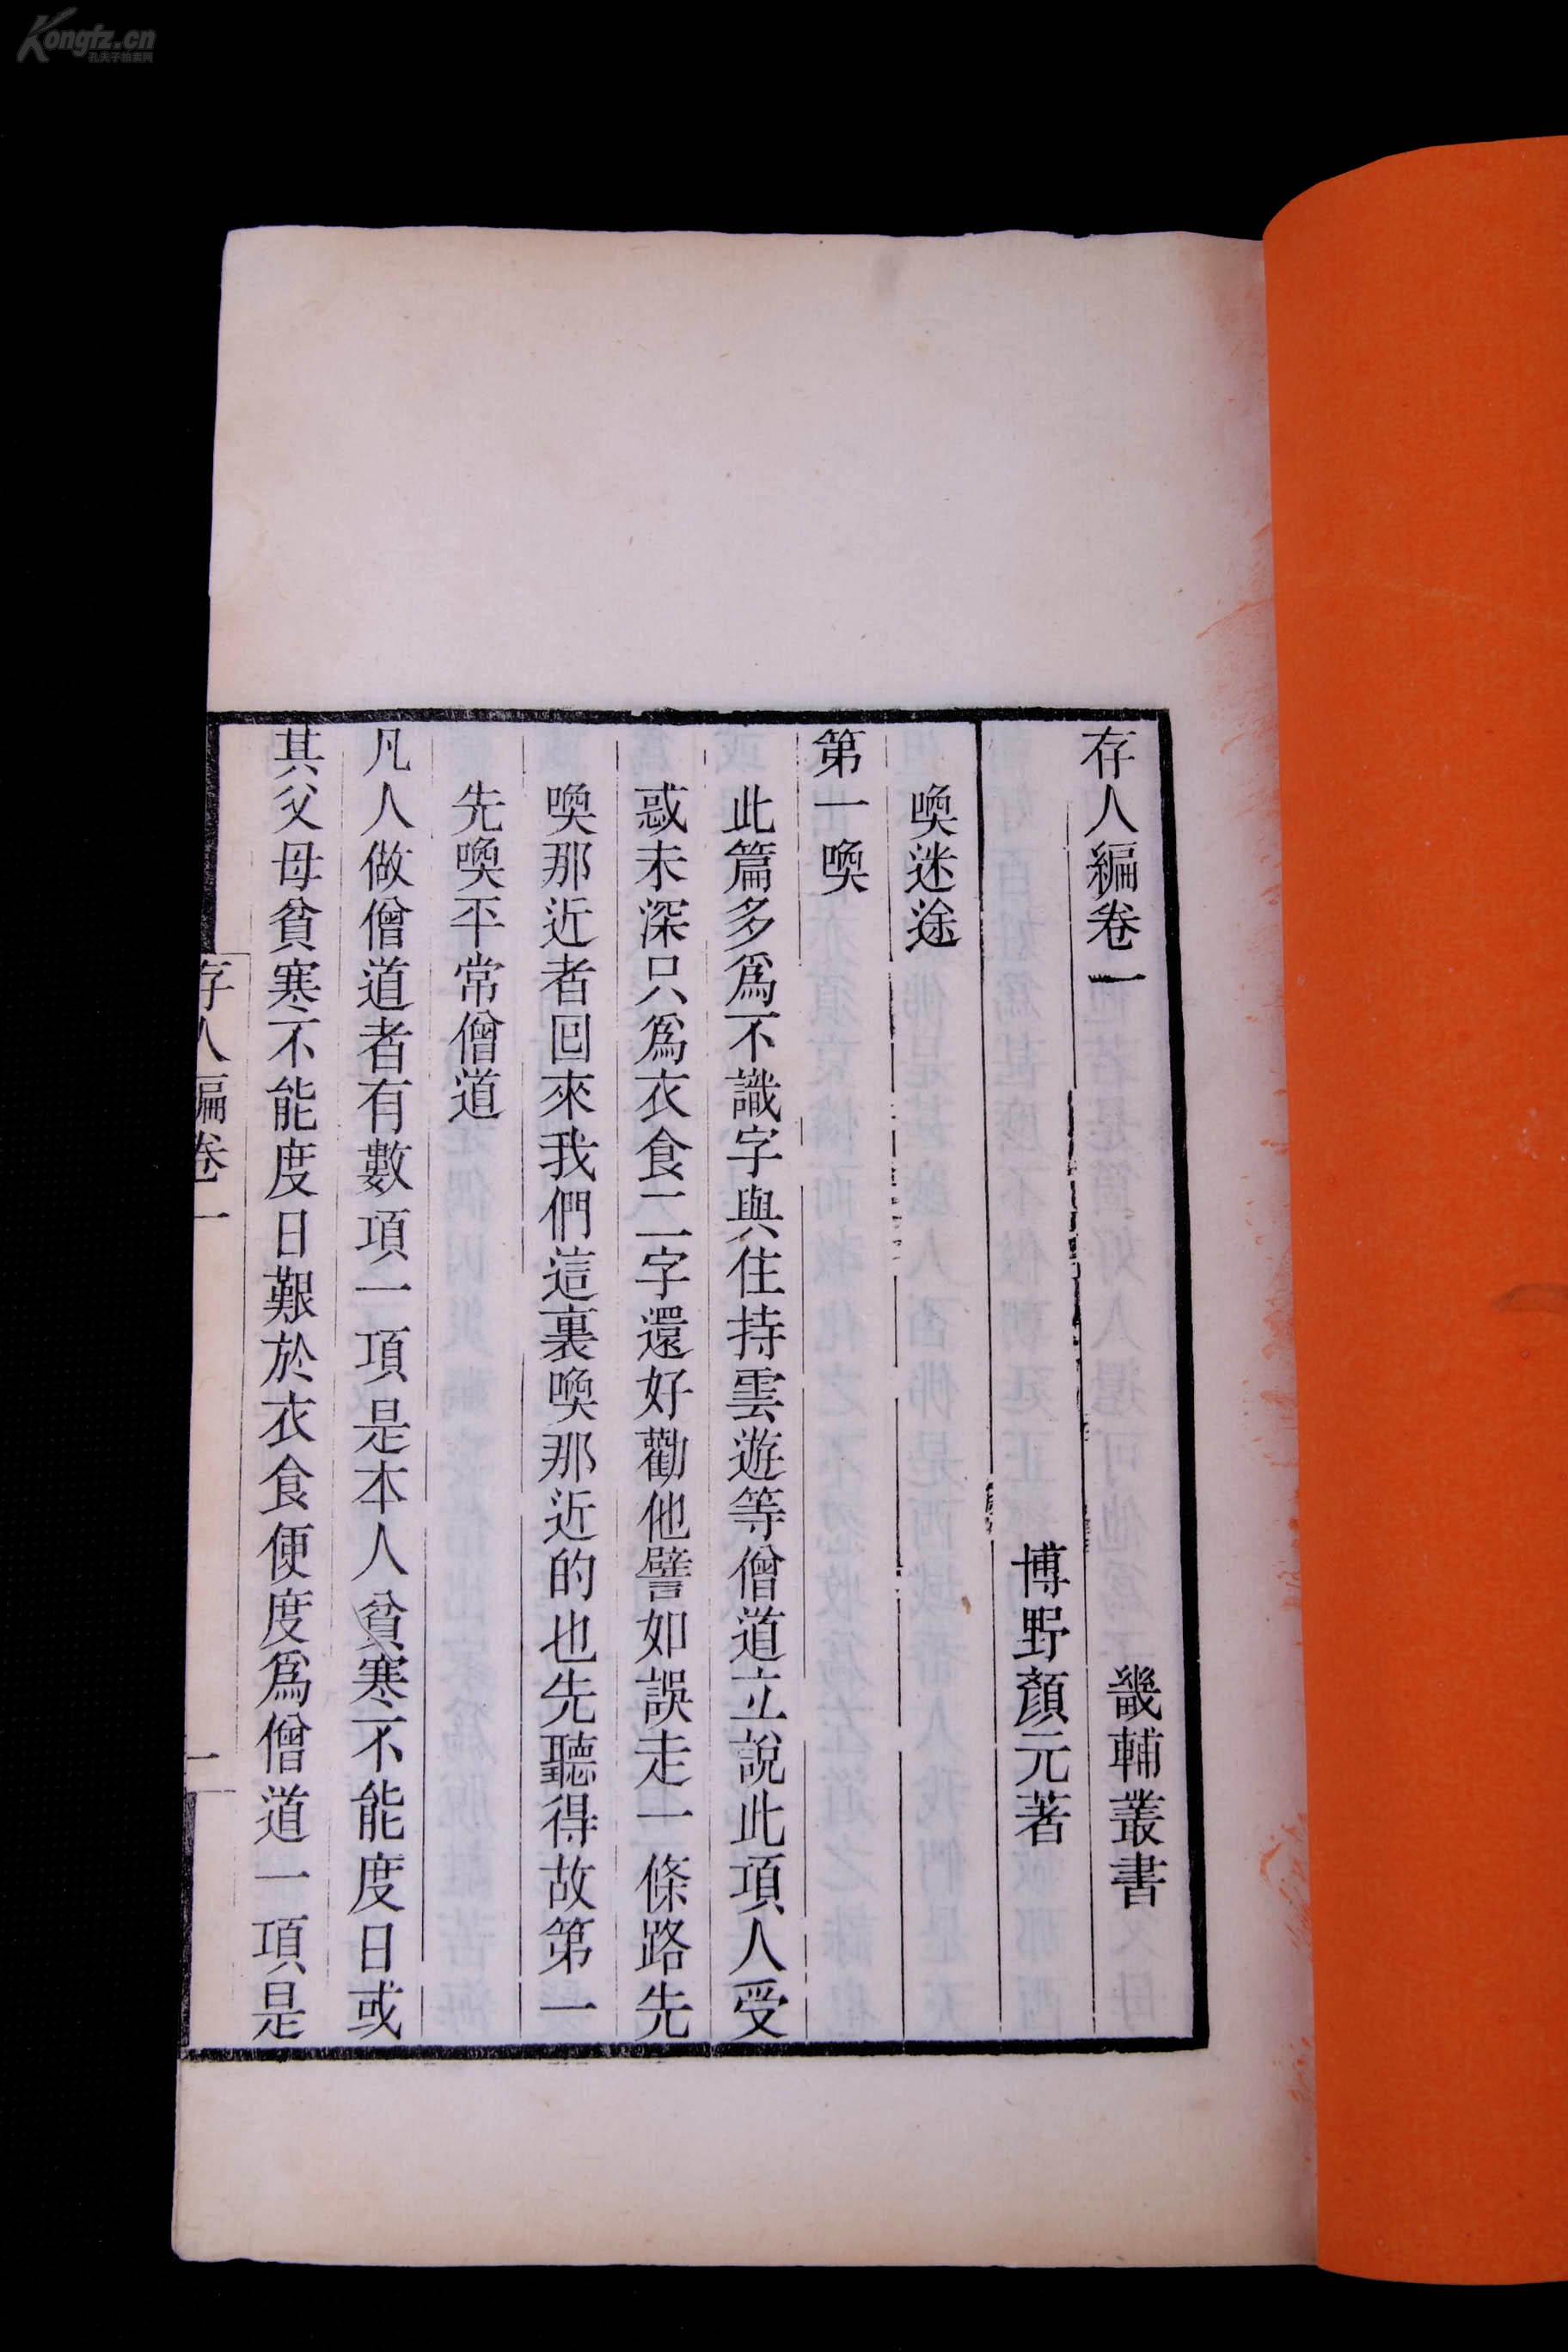 Kongfz.cn
孔夫子拍卖网
存人編卷一
畿輔叢書
博野顏元著
喚迷途
第一喚
此篇多爲不識字與住持雲遊等僧道立說此項人受
惑未深只爲衣食二字還好勸他譬如誤走一條路先
喚那近者回來我們這裏喚那近的也先聽得故第一
先喚平常僧道
凡人做僧道者有數項一項是本人貧寒不能度日或
其父母貧寒不能度日艱於衣食便度爲僧道一項是
存人編卷一
一